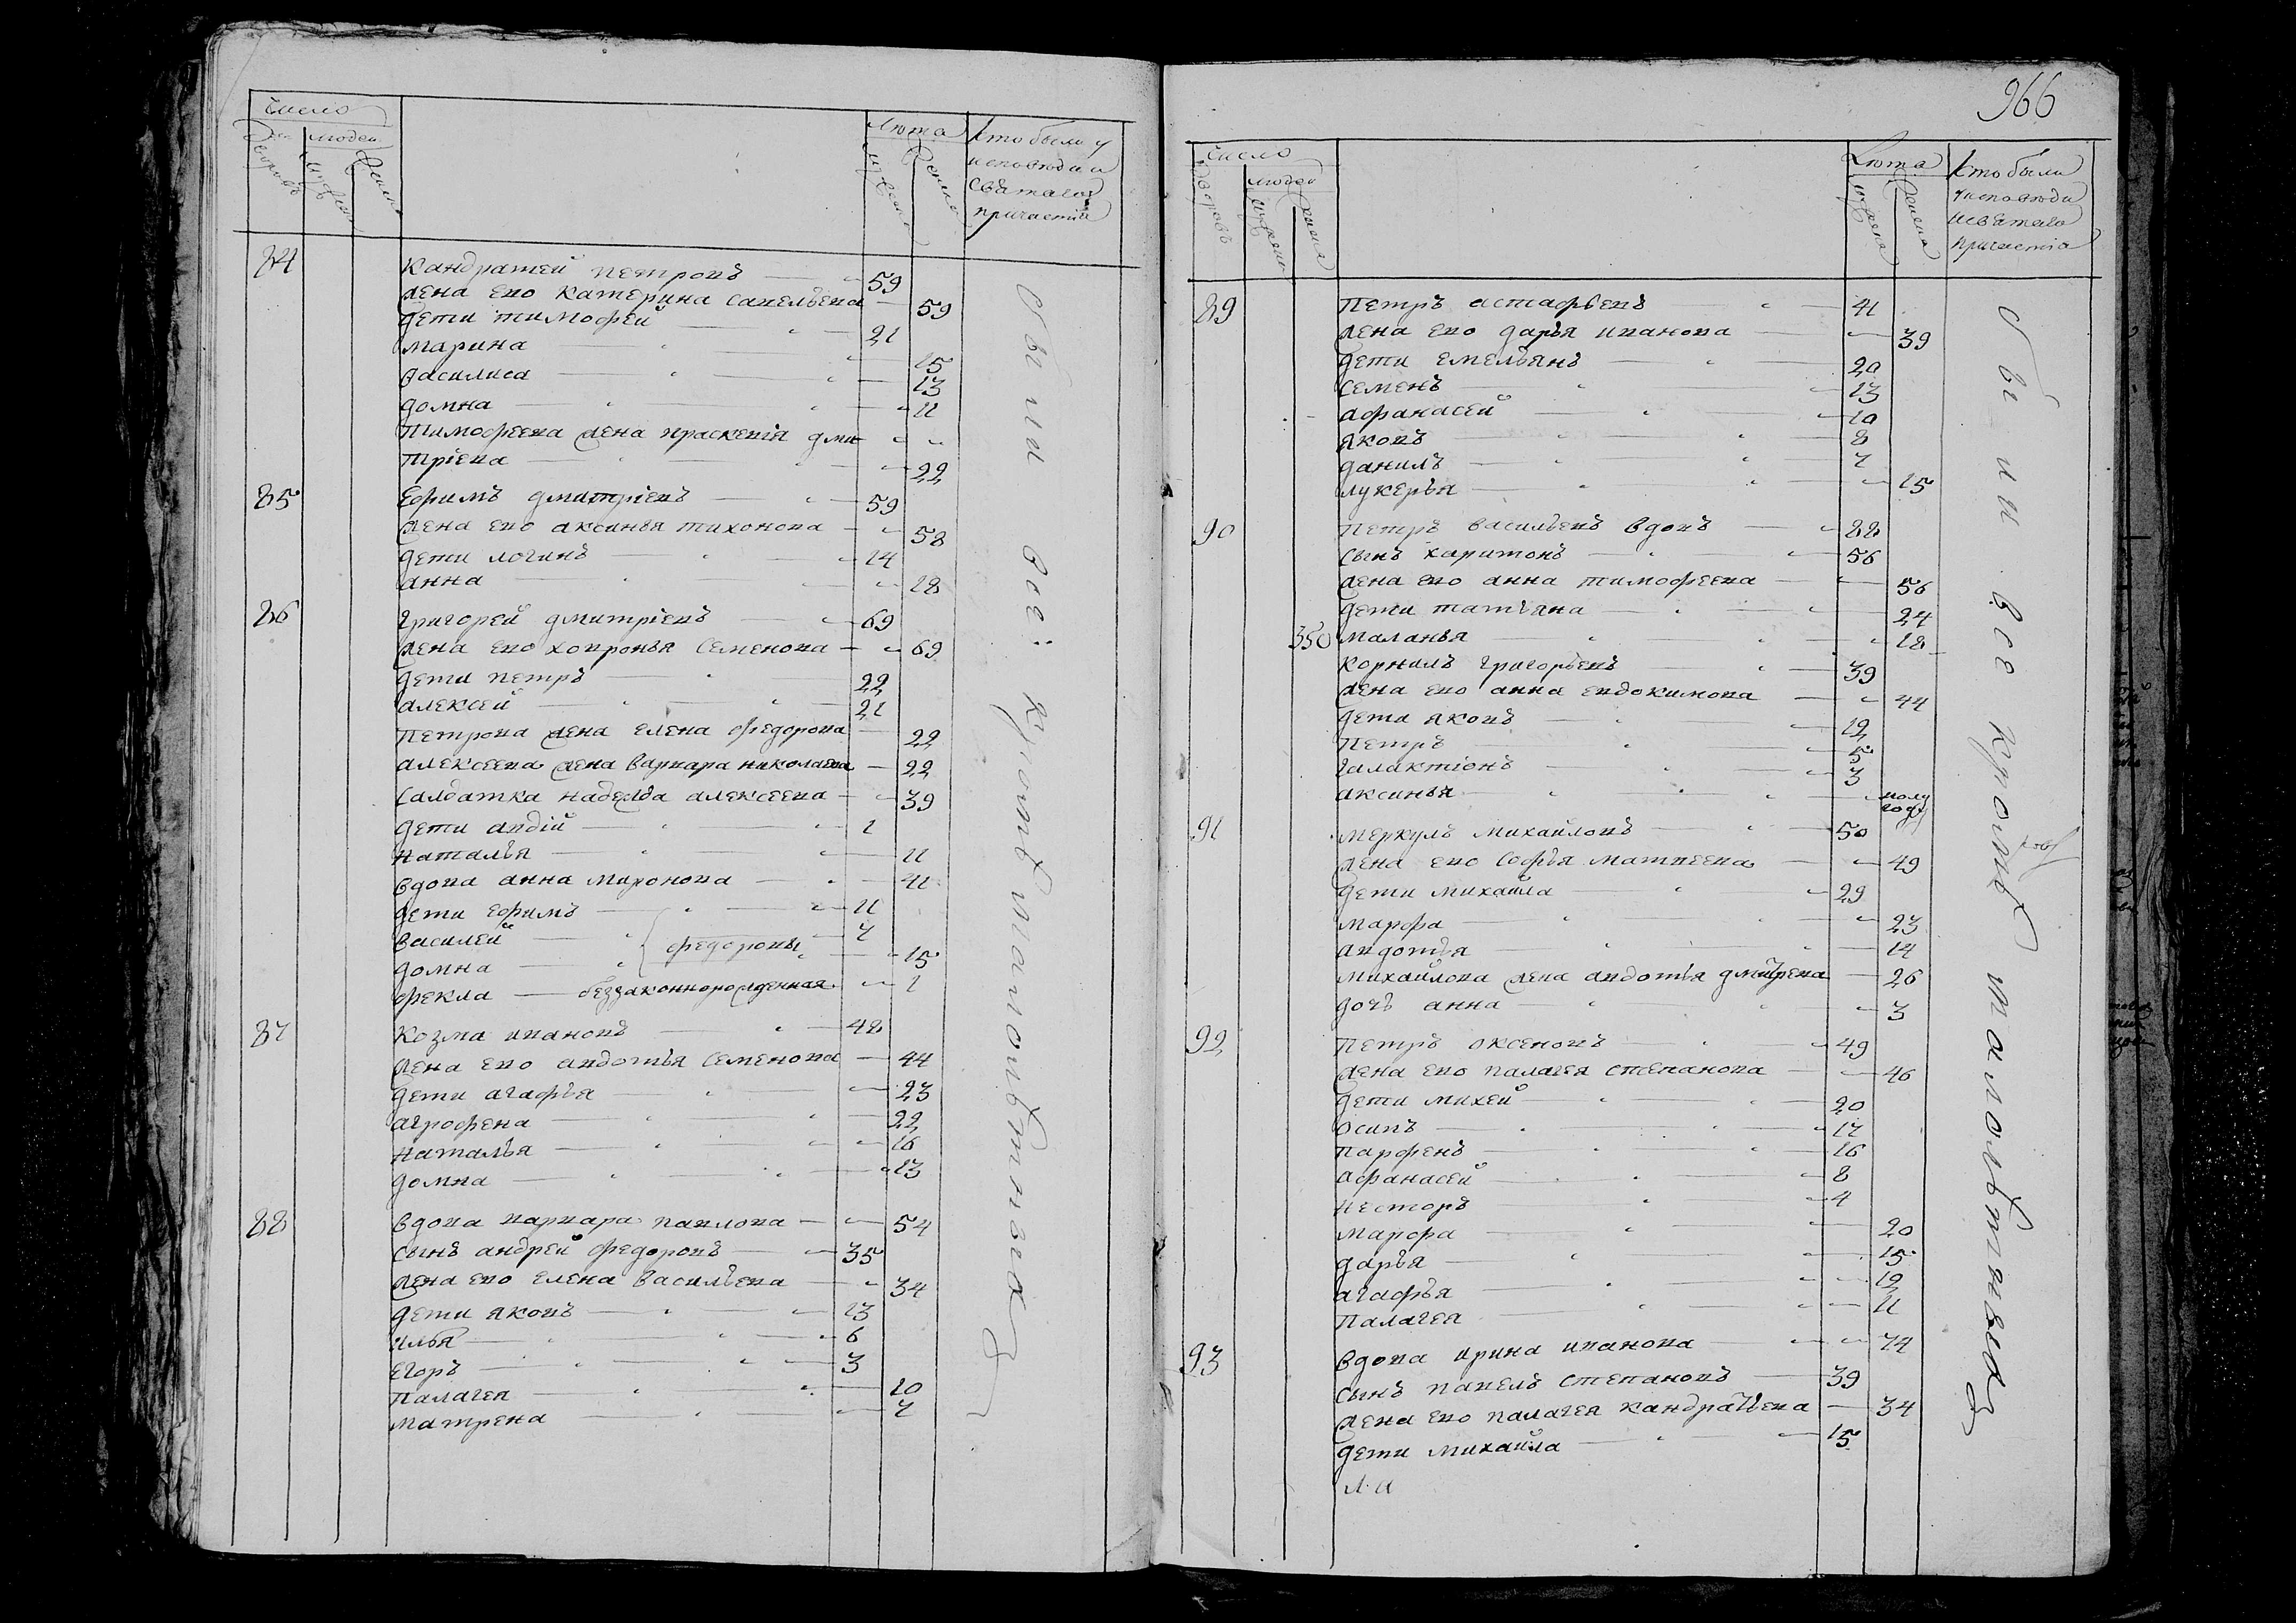 Число
дворовъ
людей
мужеска
женска
Лѣта
мужеска
женска
кто были у
исповѣди и
святаго
причастія
84 Кандратей петровъ 59
жена ево катерина савельева 59
дети тимофей 21
марина 15
василиса 13
домна 11
Тимофеева жена праскевія дми
тріева 22
85 Ефимъ дмитріевъ 59
жена ево аксинья тихонова 58
дети логинъ 14
анна 18
86 Григорей дмитріевъ 69
жена ево ховронья семенова 69
дети петръ 22
алексей 21
петрова жена елена федорова 22
алексеева жена варвара николаева 22
салдатка надежда алексеева 39
дети авдій 1
наталья 11
вдова анна миронова 41
дети ефимъ 11
василей 7
федоровы
домна 15
фекла беззаконнорожденная 1
87 Козма ивановъ 48
жена ево авдотья семенова 44
дети агафья 23
агрофена 22
наталья 16
домна 13
88 вдова варвара павлова 54
сынъ андрей федоровъ 35
жена ево елена васильева 34
дети яковъ 13
илья 6
егоръ 3
палагея 10
матрена 7
были все кроме малолѣтныхъ
966
Число
дворовъ
людей
мужеска
женска
Лѣта
мужеска
женска
кто были
у исповѣди
и святаго
причастія
89 Петръ астафьевъ 41
жена ево дарья иванова 39
дети емельянъ 20
семенъ 13
афанасей 10
яковъ 8
данилъ 7
лукерья 15
90 Петръ васильевъ вдовъ 88
сынъ харитонъ 56
жена ево анна тимофеева 56
дети татьяна 24
350 маланья 18
корнилъ григорьевъ 39
жена ево анна евдокимова 44
дети яковъ 12
петръ 5
галактіонъ 3
аксинья полу
году
91 меркулъ михайловъ 50
жена ево софья матвеева 49
дети михайла 29
марфа 23
авдотья 14
михайлова жена авдотья дмитрева 26
дочь анна 3
92 Петръ оксеновъ 49
жена ево палагея степанова 46
дети михей 20
осипъ 17
парфенъ 16
афанасей 8
несторъ 4
марфа 20
дарья 15
агафья 12
палагея 11
93 вдова ирина иванова 74
сынъ павелъ степановъ 39
жена ево палагея кандратьева 34
дети михайла 15
были все кроме малолѣтныхъ